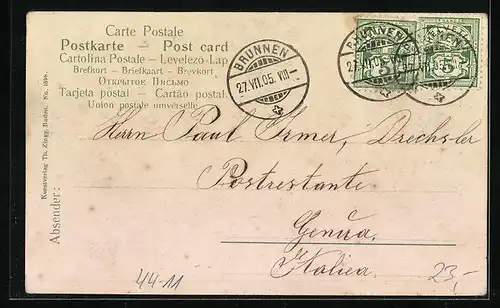 Carte Postale
Postkarte – Post card
Cartolina Postale – Levelező-Lap
Brefkort – Briefkaart – Brevkort
Открытое Письмо
Tarjeta postal – Cartão postal
Union postale universelle
BRUNNEN
27.VII.05. VIII–
BRUNNEN
27.VII.05.
Herrn Paul Irmer, Drechsler
Postrestante
Genua.
Italien.
Absender:
Kunstverlag Th. Zingg, Baden. No.
44-11
23,-